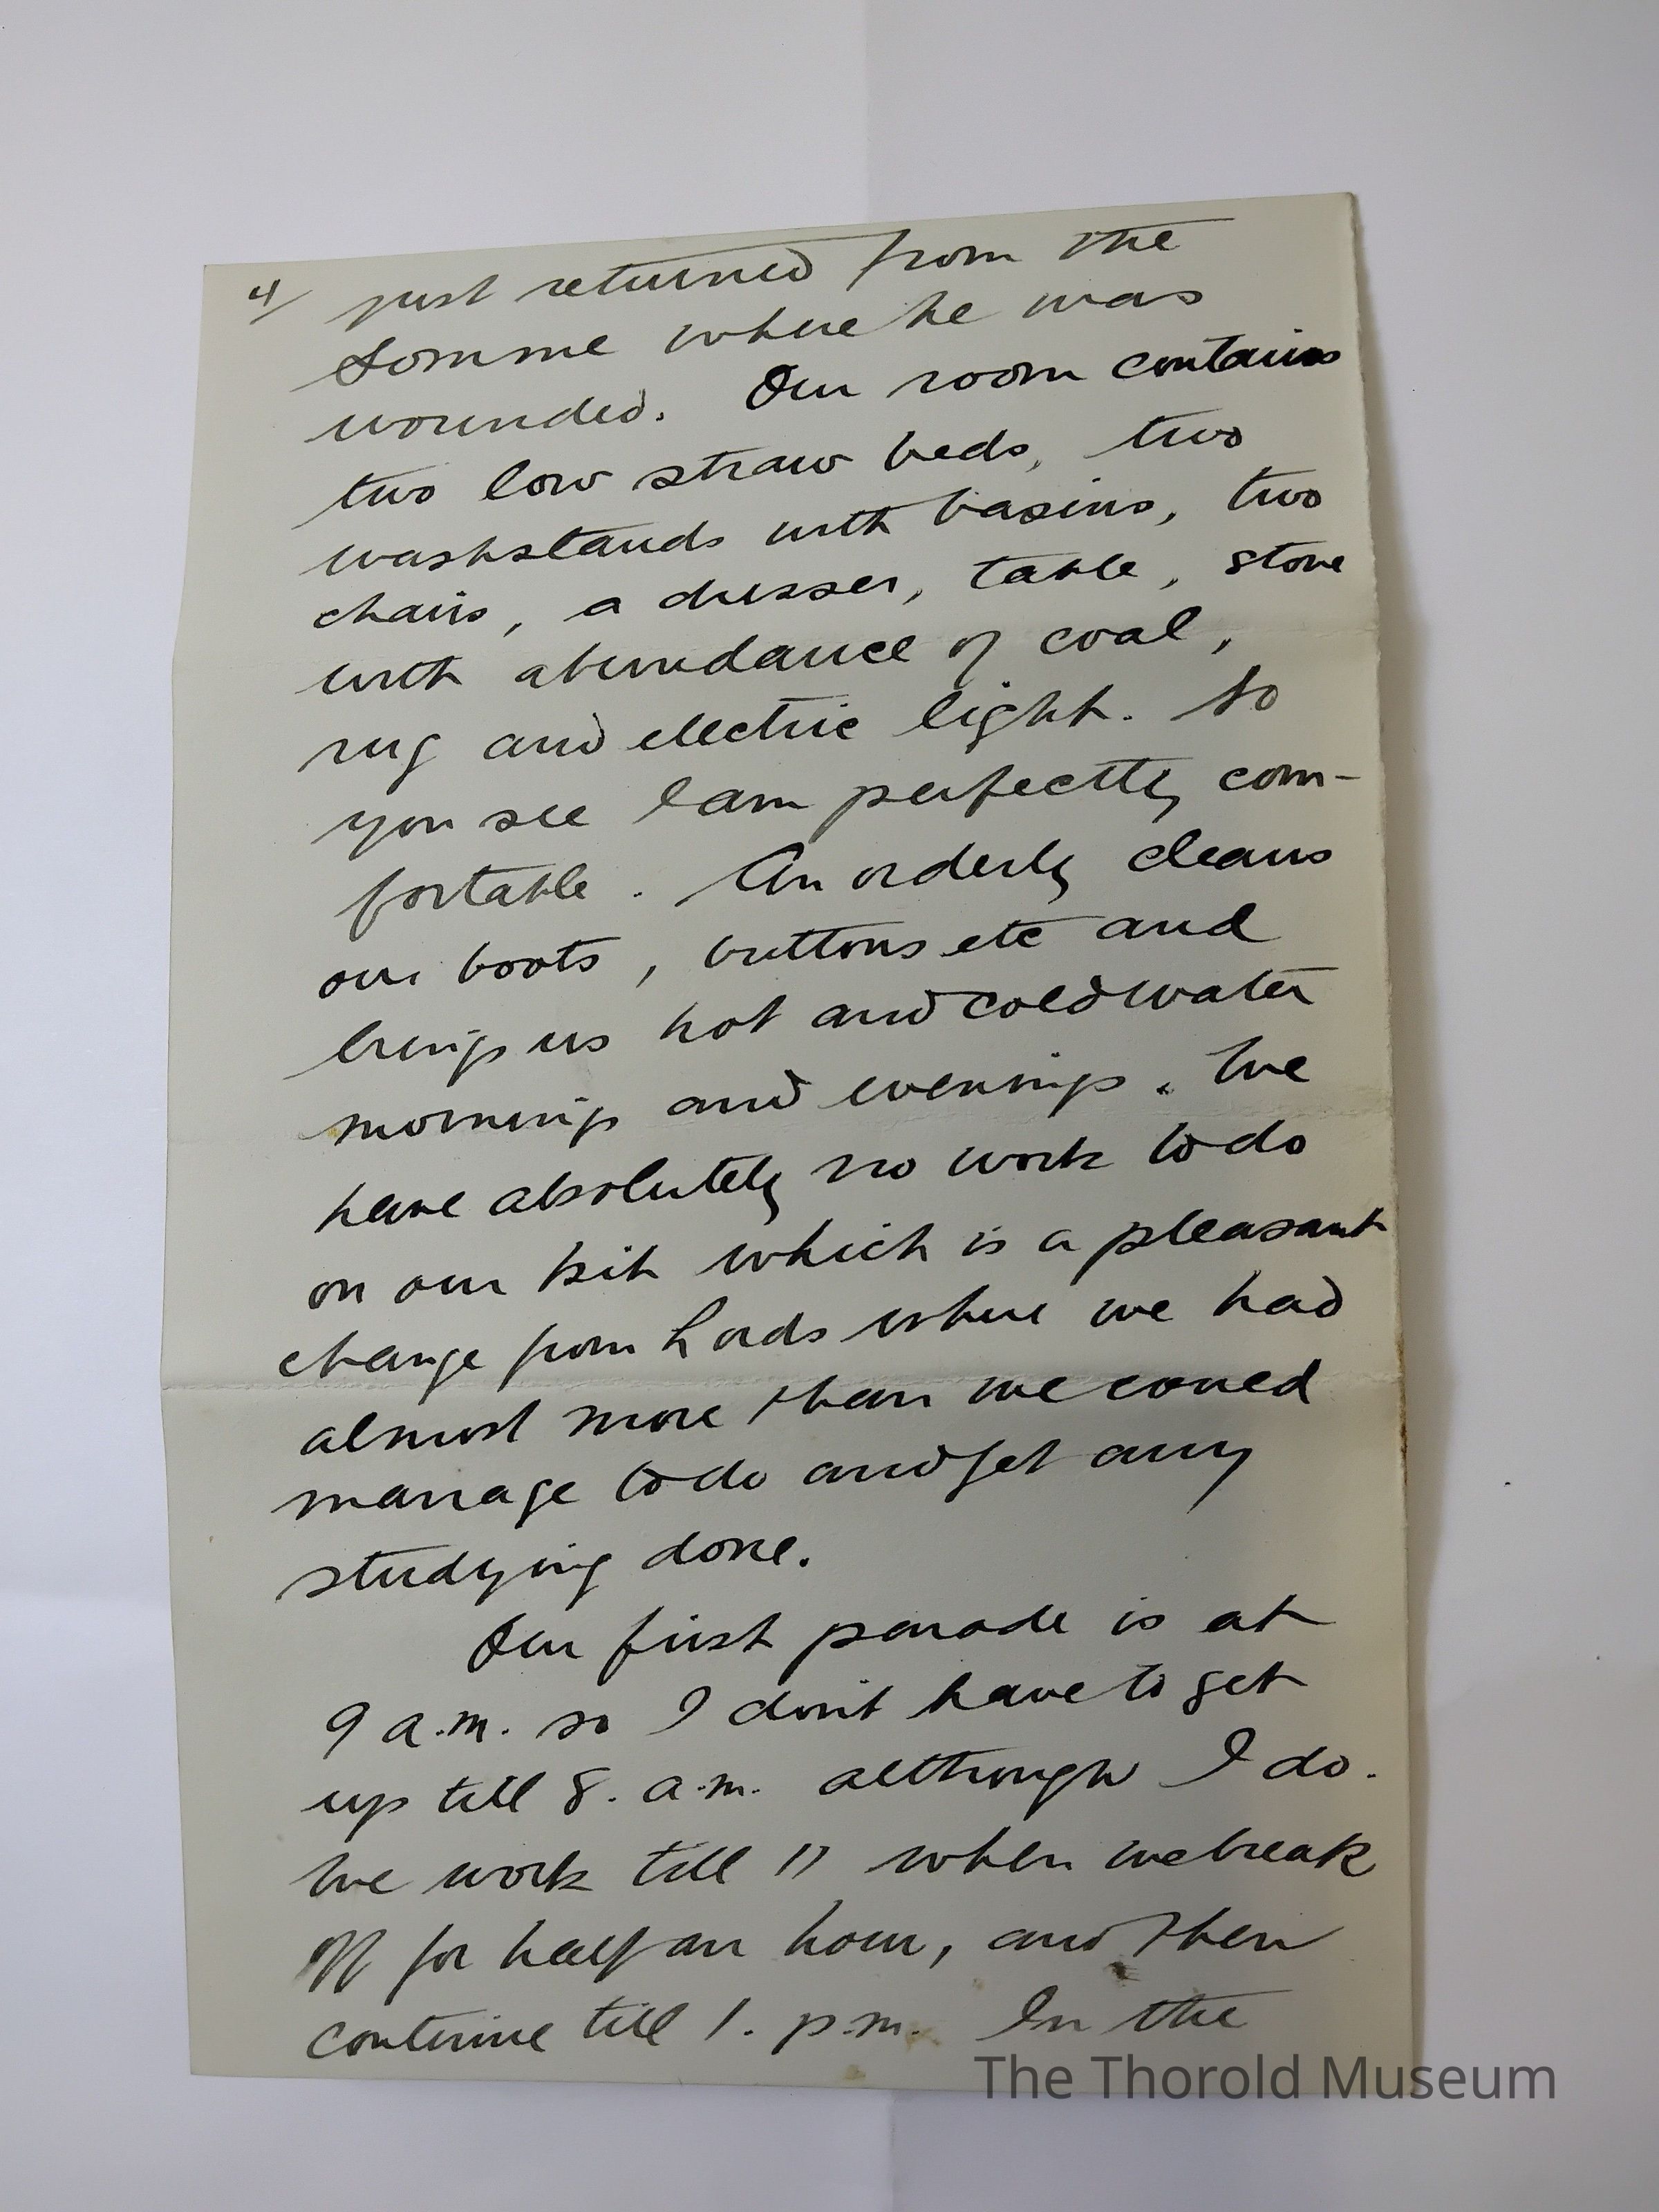 4/ just returned from the
Somme where he was
wounded. Our room contains
two low straw beds, two
washstands with basins, two
chairs, a dresser, table, stove
with abundance of coal,
rug and electric light. So
you see I am perfectly com-
fortable. An orderly cleans
our boots, buttons etc and
brings us hot and cold water
mornings and evenings. We
have absolutely no work to do
on our kit which is a pleasant
change from Lords where we had
almost more than we could
manage to do and get any
studying done.
Our first parade is at
9 a.m. so I don't have to get
up till 8. a.m. although I do.
We work till 11 when we break
off for half an hour, and then
continue till 1. p.m. In the
The Thorold Museum